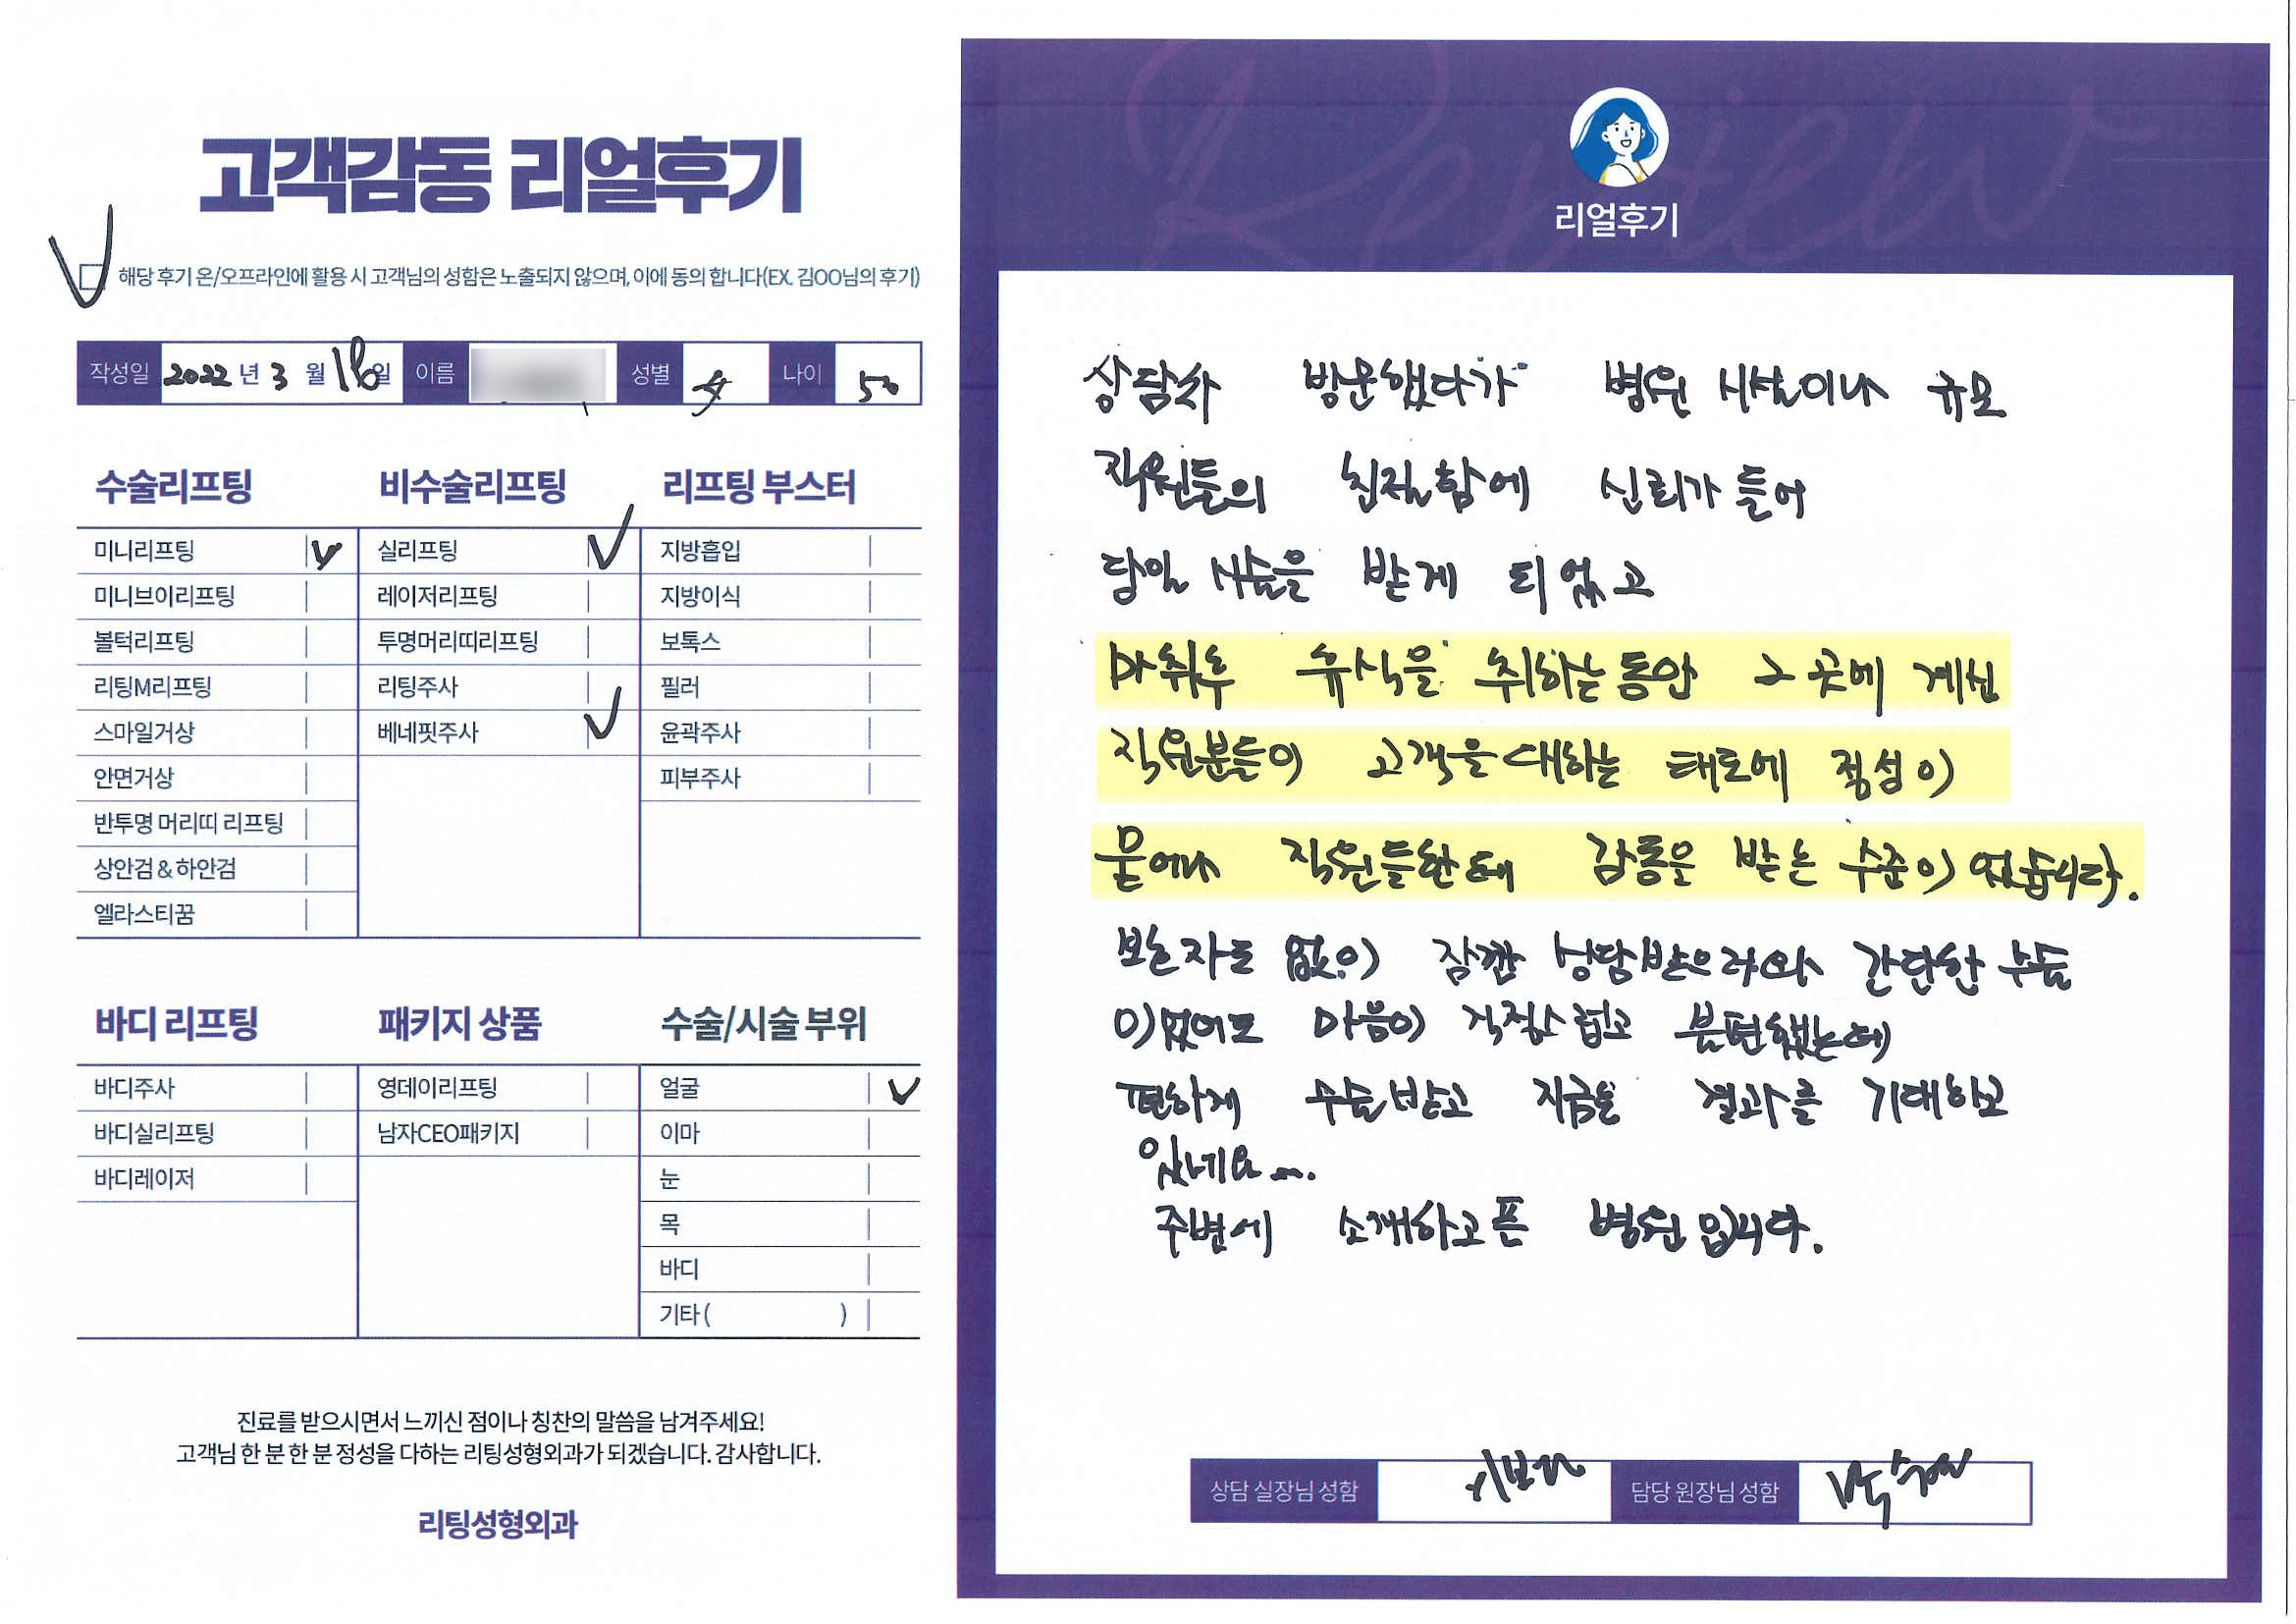 고객감동 리얼후기
해당 후기 온/오프라인에 활용 시 고객님의 성함은 노출되지 않으며, 이에 동의 합니다(EX. 김OO님의 후기)
작성일 2022 년 3 월 18일 이름 성별 여 나이 50
수술리프팅
미니리프팅
미니브이리프팅
볼턱리프팅
리팅M리프팅
스마일거상
안면거상
반투명 머리띠 리프팅
상안검 & 하안검
엘라스티꿈
비수술리프팅
실리프팅
레이저리프팅
투명머리띠리프팅
리팅주사
베네핏주사
리프팅 부스터
지방흡입
지방이식
보톡스
필러
윤곽주사
피부주사
바디 리프팅
바디주사
바디실리프팅
바디레이저
패키지 상품
영데이리프팅
남자CEO패키지
수술/시술 부위
얼굴
이마
눈
목
바디
기타 ( )
진료를 받으시면서 느끼신 점이나 칭찬의 말씀을 남겨주세요!
고객님 한 분 한 분 정성을 다하는 리팅성형외과가 되겠습니다. 감사합니다.
리팅성형외과
Review
리얼후기
상담차 방문했다가 병원 시설이나 규모
직원들의 친절함에 신뢰가 들어
당일 시술을 받게 되었고
마취후 휴식을 취하는동안 그 곳에 계신
직원분들이 고객을대하는 태도에 정성이
묻어나 직원들한테 감동을 받는 수준이 었습니다.
보호자도 없이 잠깐 상담받으러와 간단한 수술
이었어도 마음이 걱정스럽고 불편했는데
편하게 수술받고 지금은 결과를 기대하고
있네요...
주변에 소개하고픈 병원입니다.
상담 실장님 성함
담당 원장님 성함